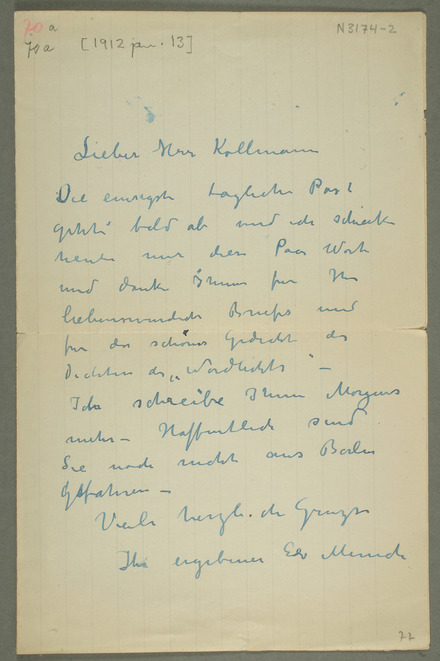 70 a
70 a
[1912 jan. 13]
N3174-2
Lieber Herr Kollmann
Die einzigste tagliche Post
geht bald ab und ich schicke
heute nur diese Paar Worte
und danke Ihnen fur Ihr
liebenswurdiche Briefe und
fur das schönes Gedicht des
Dichters des „Nordlichts" –
Ich schreibe Ihnen Morgens
mehr – Hoffentlich sind
Sie noch nicht aus Berlin
Gefahren –
Viele herzliche Grusse
Ihr ergebener Edv Munch
22